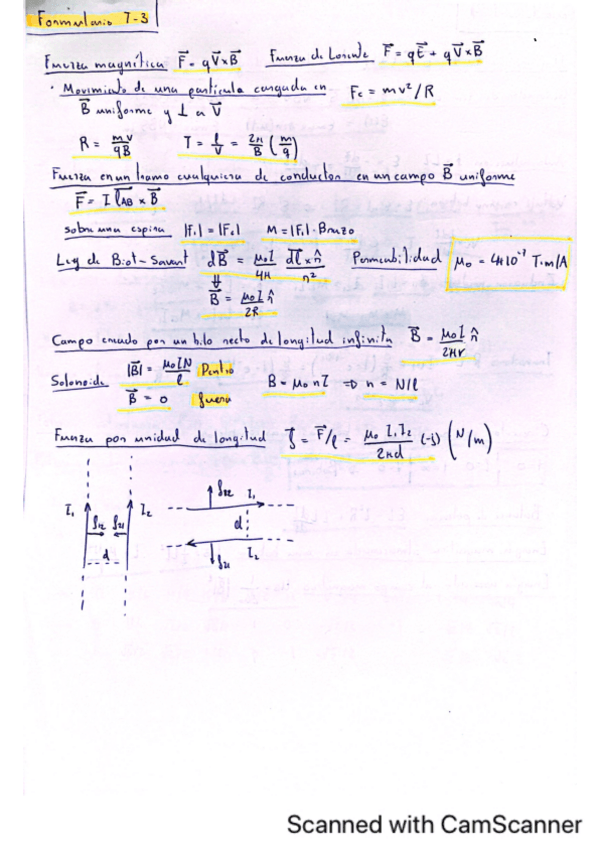 Formulario T-3
Fuerza magnética F⃗ = qV⃗×B⃗ Fuerza de Lorentz F⃗ = qE⃗ + qV⃗×B⃗
· Movimiento de una partícula cargada en Fc = mv²/R
B⃗ uniforme y ⊥ a V⃗
R = mv/qB T = l/V = 2π/B (m/q)
Fuerza en un tramo cualquiera de conductor en un campo B⃗ uniforme
F⃗ = I l⃗AB × B⃗
sobre una espira |F₁| = |F₂| M = |F₁|·Brazo
Ley de Biot-Savart dB⃗ = μ₀I/4π dl⃗×n̂/r² Permeabilidad μ₀ = 4π10⁻⁷ T·m/A
⇓
B⃗ = μ₀I/2R n̂
Campo creado por un hilo recto de longitud infinita B⃗ = μ₀I/2πr n̂
Solenoide |B⃗| = μ₀IN/l Dentro B = μ₀nI ⇒ n = N/l
B⃗ = 0 fuera
Fuerza por unidad de longitud f⃗ = F⃗/l = μ₀ I₁I₂/2πd (-j) (N/m)
I₁ f₁₂ f₂₁ I₂ d
f₁₂ I₁
d
f₂₁ I₂
Scanned with CamScanner